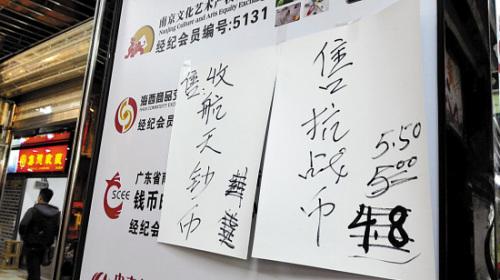 南京文化艺术产权
Nanjing Culture and Arts Equity Exchan
经纪会员编号:5131
海西商品交
经纪会员
广东省南
SCEE
钱币邮
售
收航天钞币
售抗战币
5.50
5.00
48
收藏